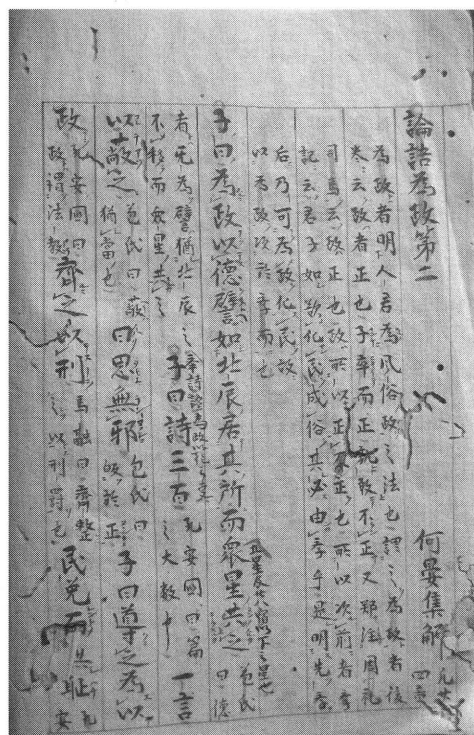 論語為政第二 何晏集解 凡廿四章
為政者明人君為風俗政之法也謂之為政者後
巻云政者正也子率而正孰敢不正又鄭注周礼
司馬云政正也政所以正不正也所以次前者学
記云君子如欲化民成俗其必由学乎是明先学
后乃可為政化民故
以為政次於学而也
五星及廿八宿以下之星也
子曰為政以德譬如北辰居其所而眾星共之 苞氏曰德
者无為譬猶北辰之
不移而眾星共之
子曰詩三百 孔安國曰篇之大数也 一言
以蔽之 苞氏曰蔽猶當也 曰思無邪 苞氏曰歸於正 子曰導之為以
政 孔安國曰政謂法教 齊之以刑 馬融曰齊整之以刑罰也 民免而無恥 孔安